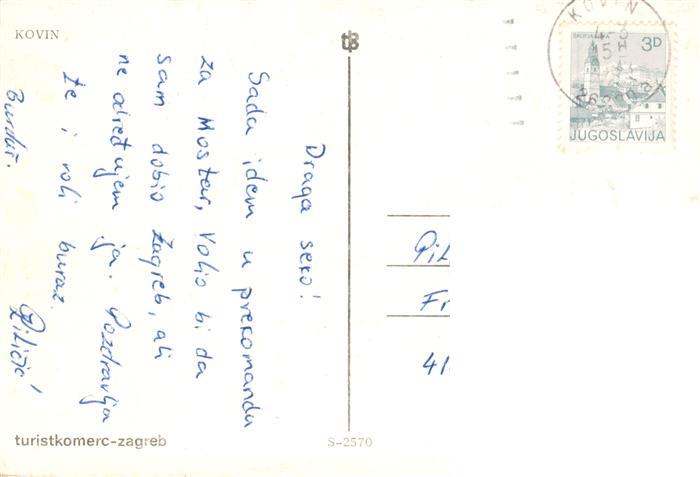 KOVIN
Draga seko!
Sada idem u prekomandu
za Mostar, Volio bi da
sam dobio Zagreb, ali
ne određujem ja. Pozdravlja
te i voli buraz.
Burduš.
Piličić
turistkomerc-zagreb
S-2570
KOVIN
3D
JUGOSLAVIJA
Pil
Fr
41